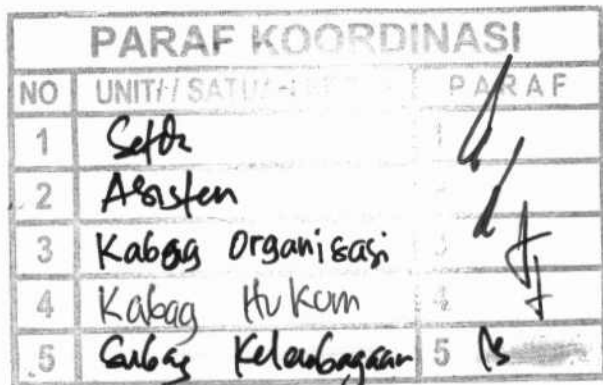 PARAF KOORDINASI
NO UNIT/ SATU PARAF
1 Setda 1
2 Asisten
3 Kabag Organisasi 3
4 Kabag Hukum 4
5 Subag Kelembagaan 5